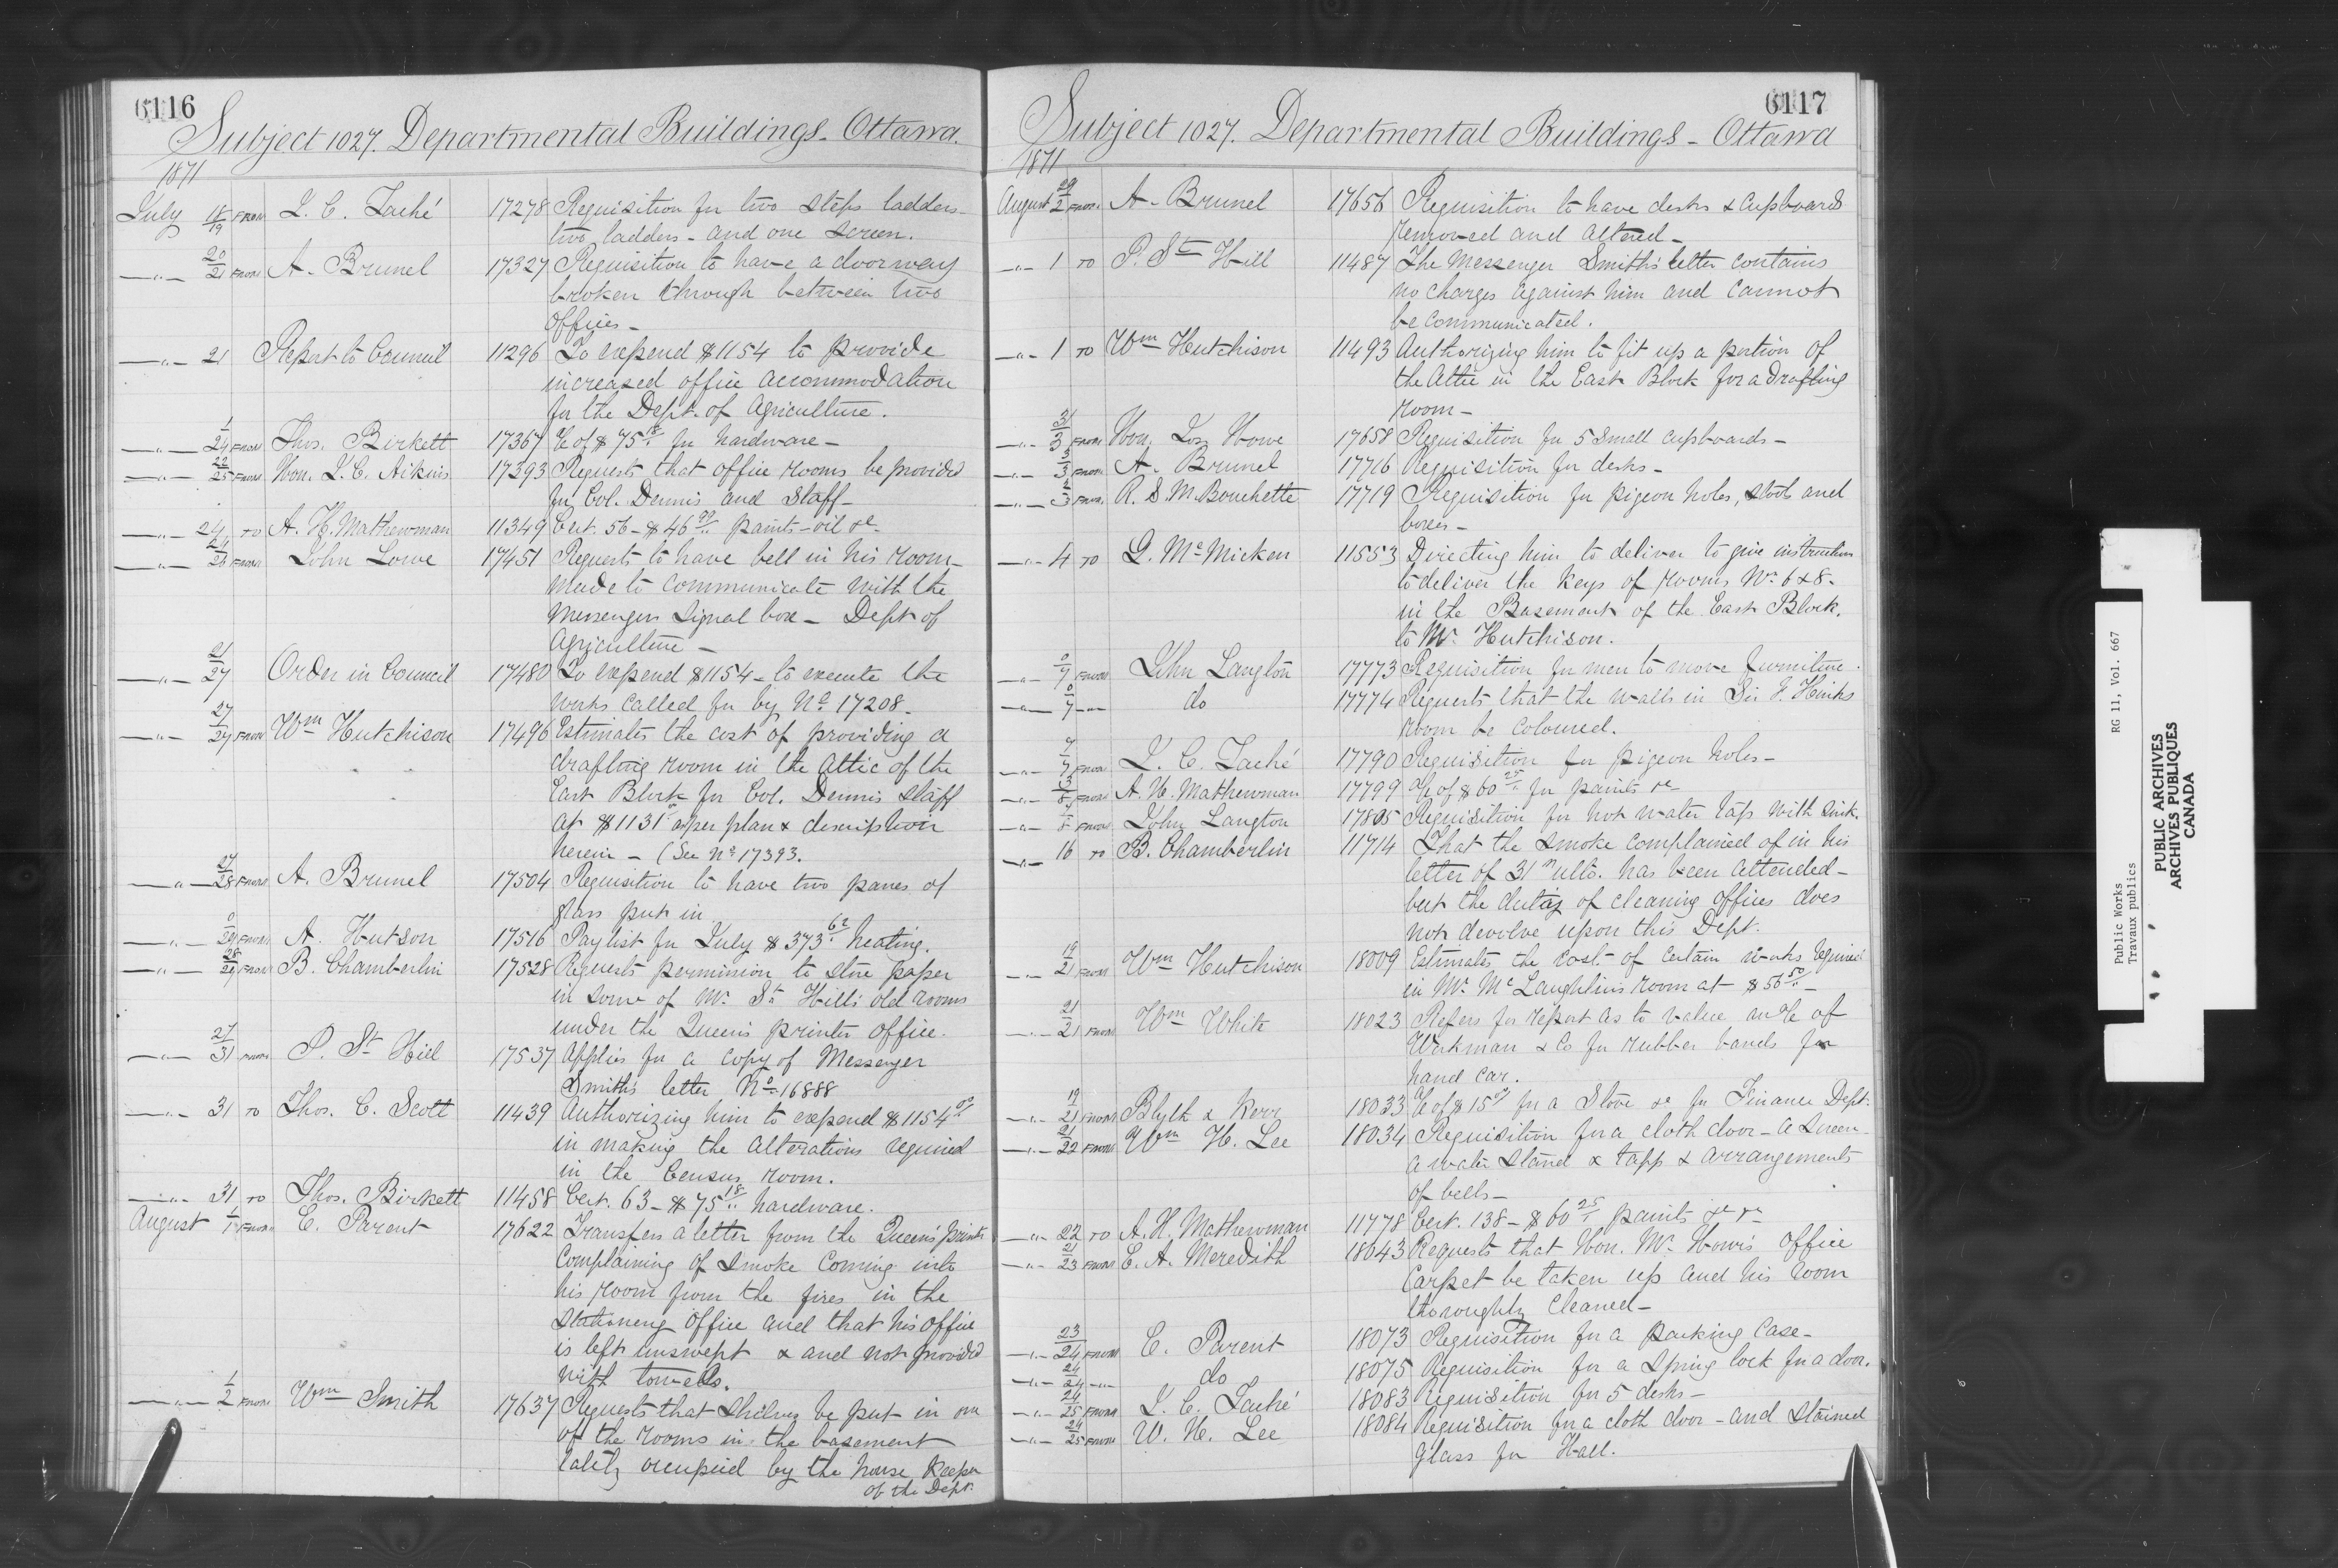 6116
Subject 1027. Departmental Buildings - Ottawa.
1871
July 18/19 FROM J. C. Taché 17278 Requisition for two steps ladders
two ladders - and one screen.
" 20/21 FROM A. Brunel 17327 Requisition to have a doorway
broken through between two
offices -
" 21 Report to Council 11296 To expend $1154 to provide
increased office accommodation
for the Dept. of Agriculture.
" 1/24 FROM Thos. Birkett 17367 % of $75 18 for hardware -
" 22/25 FROM Hon. J. C. Aikins 17393 Requests that office rooms be provided
for Col. Dennis and Staff -
" 24 TO A. H. Mathewman 11349 Cert. 56 - $46 paints - oil &c
" FROM John Lowe 17451 Requests to have bell in his room
made to communicate with the
Messengers signal box - Dept of
Agriculture -
" 21/27 Order in Council 17480 To expend $1154 - to execute the
works called for by No 17208.
" 27/27 FROM Wm Hutchison 17496 Estimates the cost of providing a
drafting room in the Attic of the
East Block for Col. Dennis Staff
at $1131 as per plan & description
herein - (See No 17393.
" 27/28 FROM A. Brunel 17504 Requisition to have two panes of
glass put in
" 0/29 FROM A. Hutson 17516 Paylist for July $373 62 heating.
" 28/29 FROM B. Chamberlin 17528 Requests permission to store paper
in some of Mr. St Hill's old rooms
under the Queen's printer office.
" 27/31 FROM P. St Hill 17537 Applies for a copy of Messenger
Smith's letter No 16888
" 31 TO Thos. C. Scott 11439 Authorizing him to expend $1154 00
in making the alterations required
in the Census room.
" 31 TO Thos. Birkett 11458 Cert. 63 - $75 18 hardware.
August 1/1 FROM E. Parent 17622 Transfers a letter from the Queen's printer
complaining of smoke coming into
his room from the fires in the
Stationery Office and that his office
is left unswept & and not provided
with towells.
" 1/2 FROM Wm Smith 17637 Requests that shelves be put in one
of the rooms in the basement
lately occupied by the house keeper
of the Dept.
6117
Subject 1027. Departmental Buildings - Ottawa
1871
August 29/2 FROM A. Brunel 17656 Requisition to have desks & cupboards
removed and altered -
" 1 TO P. St Hill 11487 The Messenger Smith's letter contains
no charges against him and cannot
be communicated.
" 1 TO Wm Hutchison 11493 Authorizing him to fit up a portion of
the Attic in the East Block for a drafting
room -
" 31/3 FROM Hon. Jos. Howe 17658 Requisition for 5 small cupboards -
" 3/3 FROM A. Brunel 17716 Requisition for desks -
" 2/3 FROM R. S. M. Bouchette 17719 Requisition for pigeon holes, stools and
boxes -
" 4 TO G. McMicken 11553 Directing him to deliver to give instruction
to deliver the keys of rooms No 6 & 8.
in the Basement of the East Block.
to Mr. Hutchison.
" 0/7 FROM John Langton 17773 Requisition for men to move furniture.
" 0/7 " do 17774 Requests that the walls in Sir F. Hinks
room be coloured.
" 7/7 FROM J. C. Taché 17790 Requisition for pigeon holes -
" 3/8 FROM A. H. Mathewman 17799 % of $60 25 for paints &c
" 7/8 FROM John Langton 17805 Requisition for hot water taps with sink.
" 16 TO B. Chamberlin 11714 That the smoke complained of in his
letter of 31st ulto. has been attended -
but the duties of cleaning offices does
not devolve upon this Dept.
" 19/21 FROM Wm Hutchison 18009 Estimates the cost of certain works required
in Mr. McLaughlins room at $56 50 -
" 21/21 FROM Wm White 18023 Refers for report as to value in % of
Workman & Co for rubber bands for
hand car.
" 19/21 FROM Blyth & Kerr 18033 % of $15 for a Stove &c for Finance Dept.
" 21/22 FROM Wm H. Lee 18034 Requisition for a cloth door - a screen
a water stand & tapp & arrangements
of bells -
" 22 TO A. H. Mathewman 11778 Cert. 138 - $60 25 paints &c &c
" 21/23 FROM E. A. Meredith 18043 Requests that Hon. Mr. Howe's office
carpet be taken up and his room
thoroughly cleaned -
" 23/24 FROM E. Parent 18073 Requisition for a packing case -
" 24/24 " do 18075 Requisition for a spring lock for a door.
" 24/25 FROM J. C. Taché 18083 Requisition for 5 desks -
" 24/25 FROM W. H. Lee 18084 Requisition for a cloth door - and stained
glass for Hall.
Public Works RG 11, Vol. 667
Travaux publics
PUBLIC ARCHIVES
ARCHIVES PUBLIQUES
CANADA